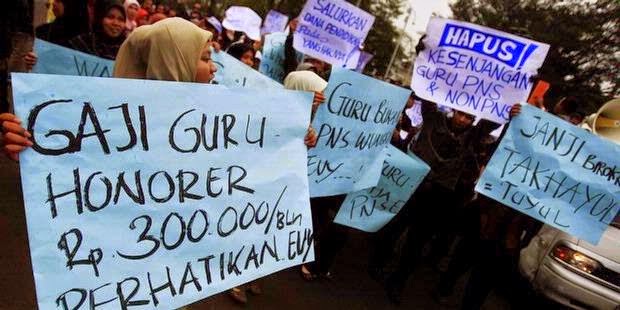 GAJI GURU
HONORER
Rp. 300.000/Bln
PERHATIKAN EUY
SALURKAN
DANA PENDIDIKAN
YANG HAK
HAPUS!!
KESENJANGAN
GURU PNS
& NON PNS
GURU
PNS
EUY...!
GURU
PNS
JANJI
TAKHAYUL
= TUYUL